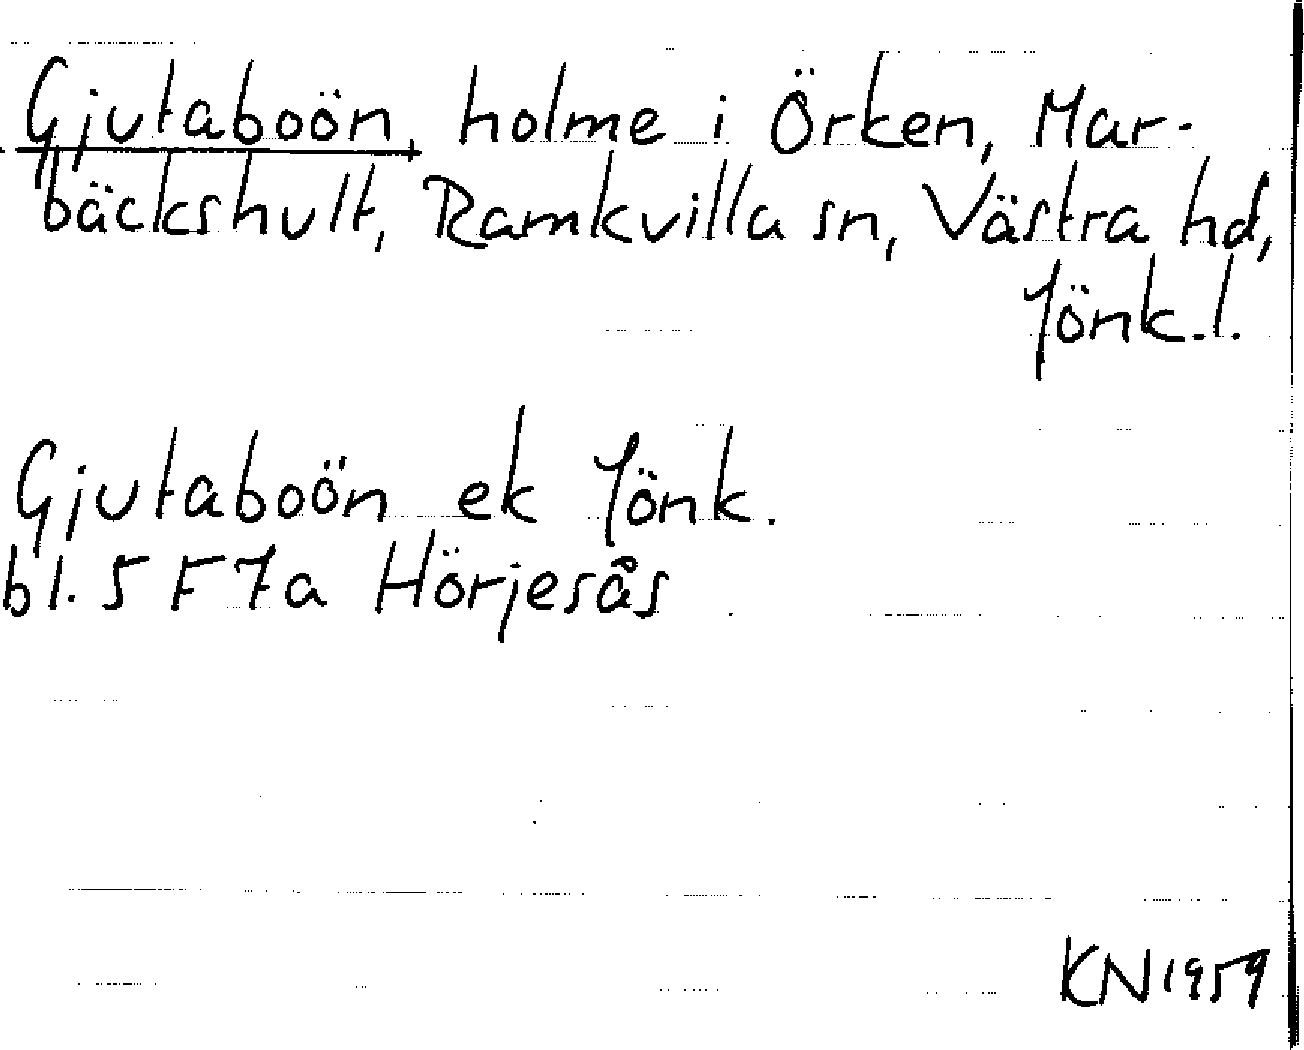 Gjutaboön, holme i Örken, Mar-
bäckshult, Ramkvilla sn, Västra hd,
Jönk.l.
Gjutaboön ek Jönk.
bl. 5 F 7a Hörjesås
KN1959